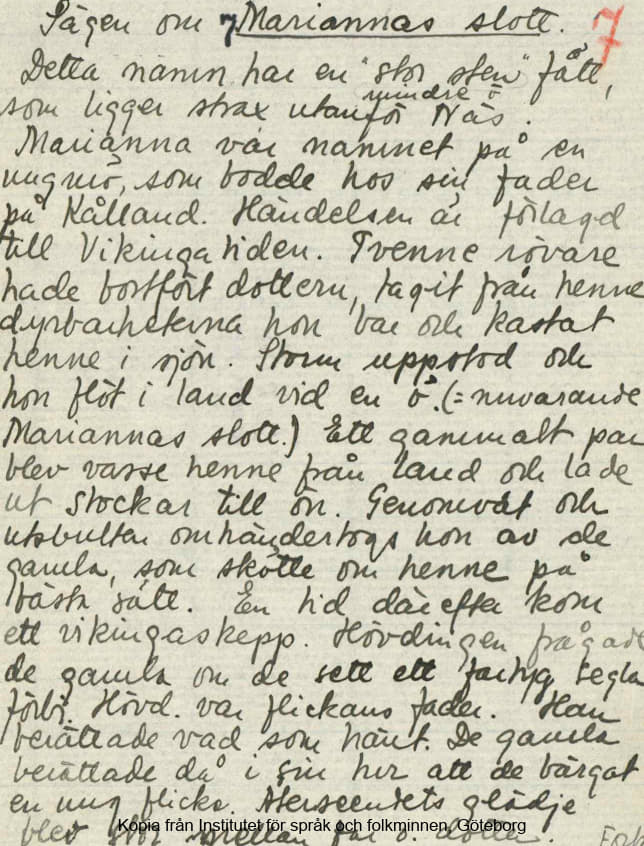 Sägen om Mariannas slott. 7
Detta namn har en "stor sten" fått,
som ligger strax utanför mindre ö Näs.
Marianna var namnet på en
ungmö, som bodde hos sin fader
på Kålland. Händelsen är förlagd
till Vikingatiden. Tvenne rövare
hade bortfört dottern, tagit från henne
dyrbarheterna hon bar och kastat
henne i sjön. Storm uppstod och
hon flöt i land vid en ö. (= nuvarande
Mariannas slott.) Ett gammalt par
blev varse henne från land och lade
ut stockar till ön. Genomvåt och
utsvulten omhändertogs hon av de
gamla, som skötte om henne på
bästa sätt. En tid därefter kom
ett vikingaskepp. Hövdingen frågade
de gamla om de sett ett fartyg segla
förbi. Hövd. var flickans fader. Han
berättade vad som hänt. De gamla
berättade då i sin tur att de bärgat
en ung flicka. Återseendets glädje
blev stor mellan far o. dotter.
Kopia från Institutet för språk och folkminnen, Göteborg